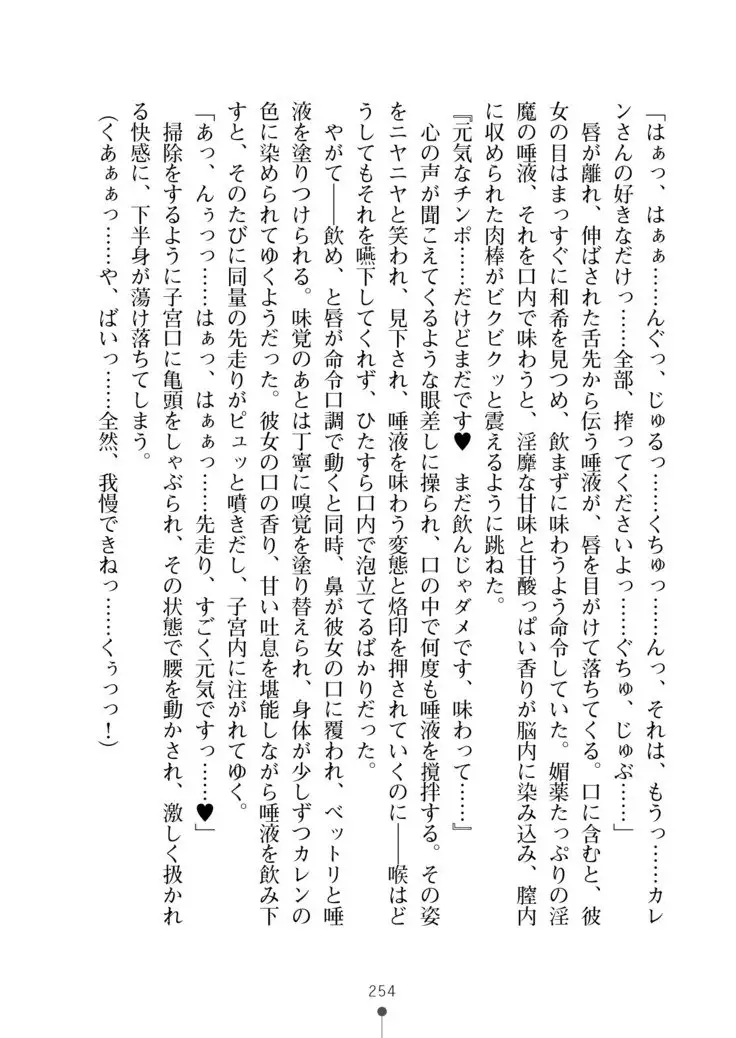 「はぁっ、はぁぁ……んぐっ、じゅるっ……くちゅっ……んっ、それは、もうっ……カレ
ンさんの好きなだけっ……全部、搾ってくださいよっ……ぐちゅ、じゅぶ……」
　唇が離れ、伸ばされた舌先から伝う唾液が、唇を目がけて落ちてくる。口に含むと、彼
女の目はまっすぐに和希を見つめ、飲まずに味わうよう命令していた。媚薬たっぷりの淫
魔の唾液、それを口内で味わうと、淫靡な甘味と甘酸っぱい香りが脳内に染み込み、膣内
に収められた肉棒がビクビクッと震えるように跳ねた。
『元気なチンポ……だけどまだです♥　まだ飲んじゃダメです、味わって……』
　心の声が聞こえてくるような眼差しに操られ、口の中で何度も唾液を撹拌する。その姿
をニヤニヤと笑われ、見下され、唾液を味わう変態と烙印を押されていくのに――喉はど
うしてもそれを嚥下してくれず、ひたすら口内で泡立てるばかりだった。
　やがて――飲め、と唇が命令口調で動くと同時、鼻が彼女の口に覆われ、ベットリと唾
液を塗りつけられる。味覚のあとは丁寧に嗅覚を塗り替えられ、身体が少しずつカレンの
色に染められてゆくようだった。彼女の口の香り、甘い吐息を堪能しながら唾液を飲み下
すと、そのたびに同量の先走りがピュッと噴きだし、子宮内に注がれてゆく。
「あっ、んぅっっ……はぁっ、はぁぁっ……先走り、すごく元気ですっ……♥」
　掃除をするように子宮口に亀頭をしゃぶられ、その状態で腰を動かされ、激しく扱かれ
る快感に、下半身が蕩け落ちてしまう。
（くあぁぁっ……や、ばいっ……全然、我慢できねっ……くぅっっ！）
254